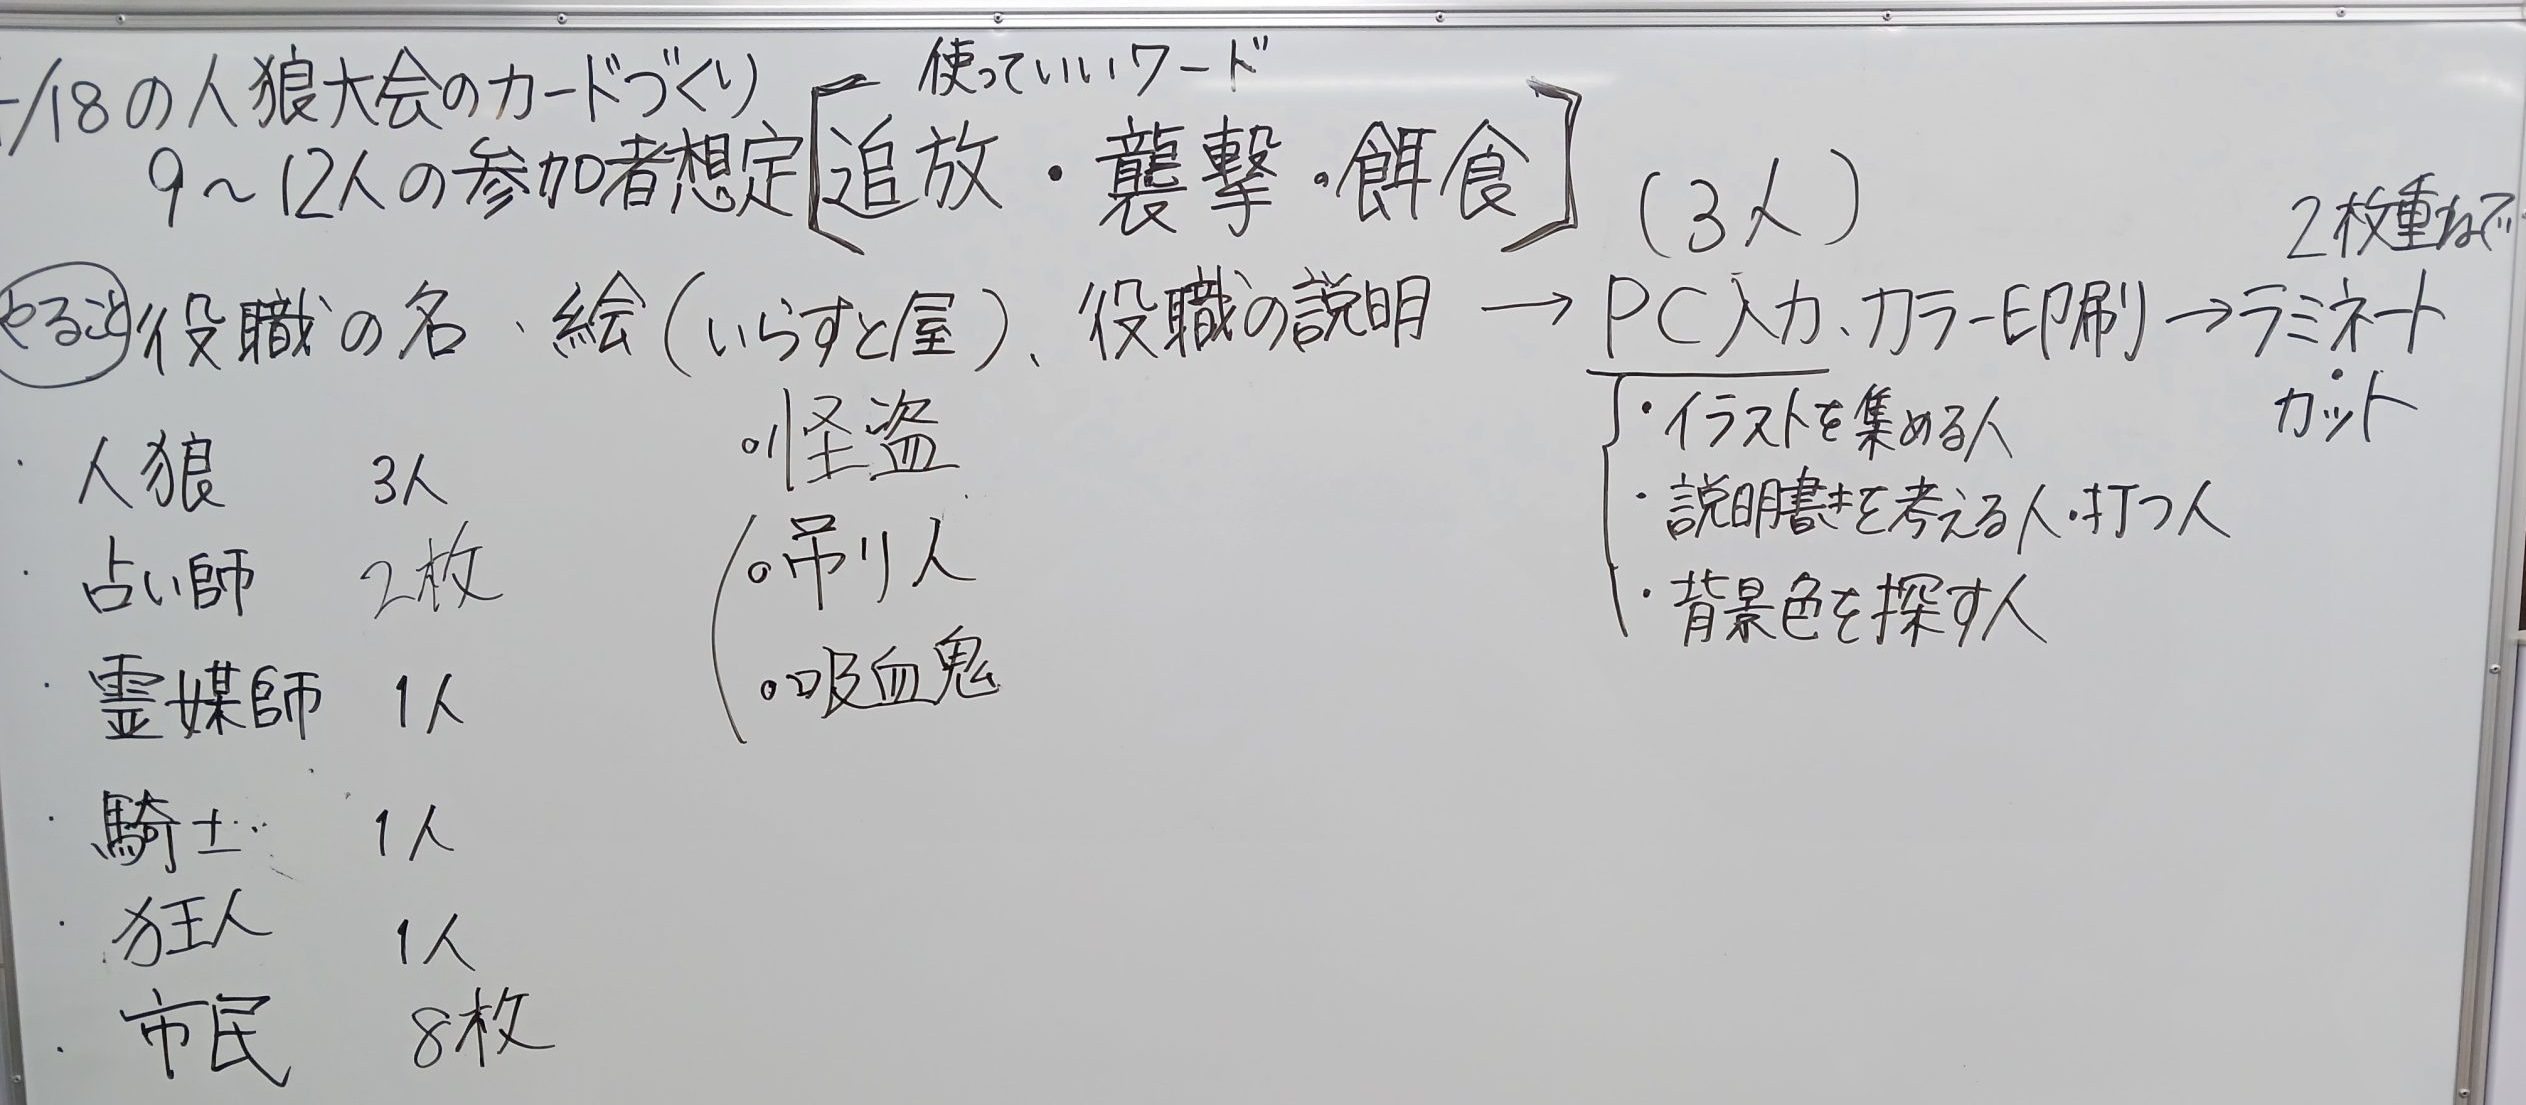 /18の人狼大会のカードづくり
9～12人の参加者想定
使っていいワード
[追放・襲撃・餌食]
(3人)
2枚重ねで
やること 役職の名、絵(いらすと屋)、役職の説明 → PC入力、カラー印刷 → ラミネート
・カット
・人狼 3人
・占い師 2枚
・霊媒師 1人
・騎士 1人
・狂人 1人
・市民 8枚
○怪盗
○吊り人
○吸血鬼
・イラストを集める人
・説明書きを考える人・打つ人
・背景色を探す人